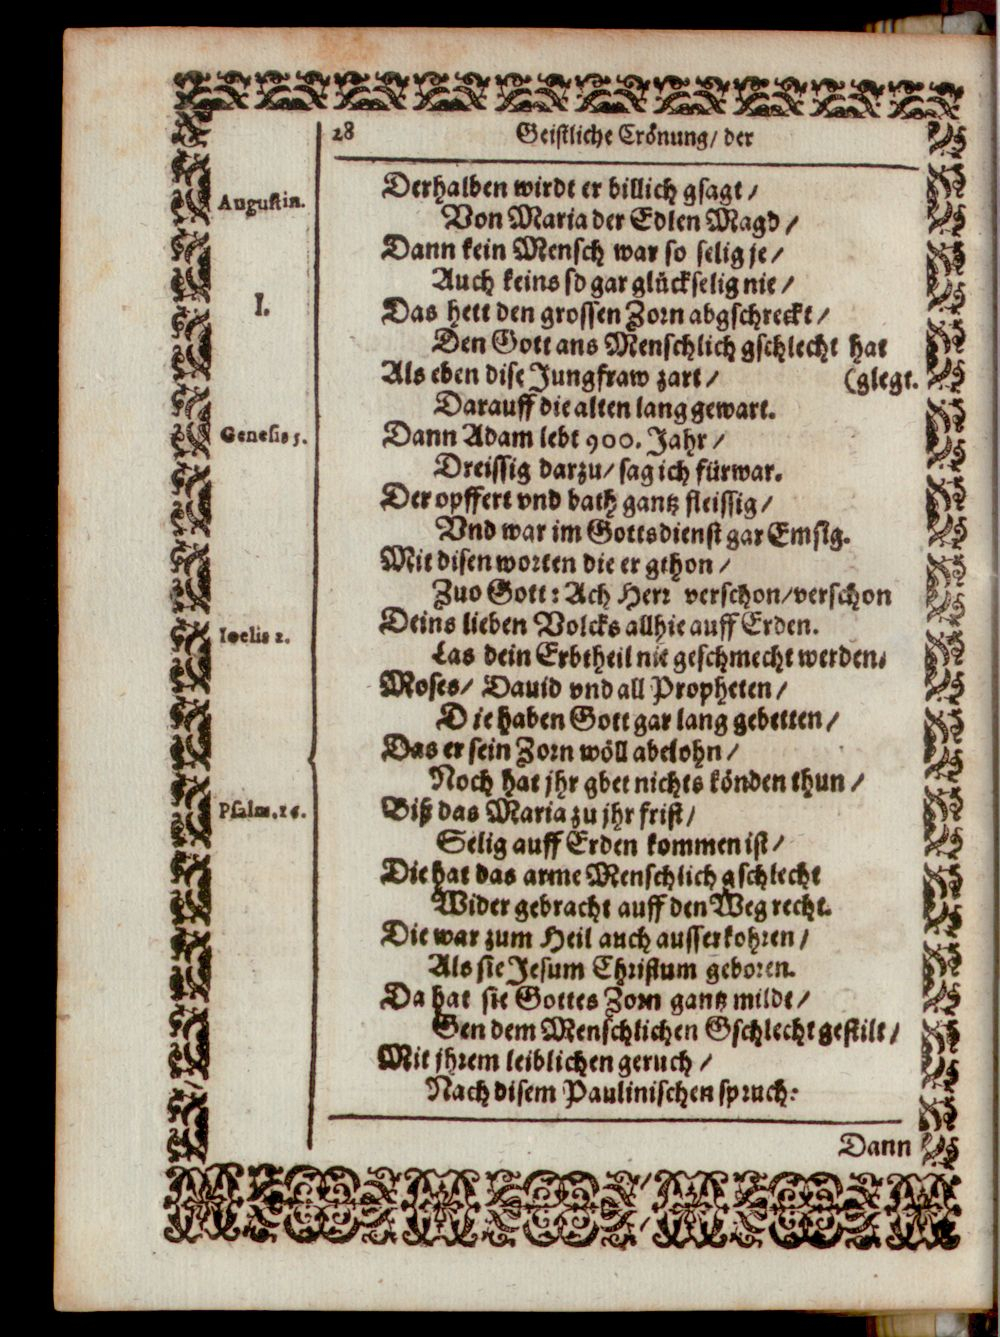 28 Geistliche Crönung/ der
Derhalben wirdt er billich gsagt/
Augustin.
Von Maria der Edlen Magd/
Dann kein Mensch war so selig je/
Auch keins so gar glückselig nie/
I.
Das hett den grossen Zorn abgschreckt/
Den Gott ans Menschlich gschlecht hat
Als eben dise Jungfraw zart/ (glegt.
Darauff die alten lang gewart.
Genesis 5.
Dann Adam lebt 900. Jahr/
Dreissig darzu/ sag ich fürwar.
Der opffert vnd bath gantz fleissig/
Vnd war im Gottsdienst gar Emsig.
Mit disen worten die er gthon/
Zuo Gott: Ach Herr verschon/verschon
Deins lieben Volcks allhie auff Erden.
Ioelis 2.
Las dein Erbtheil nie geschmecht werden.
Moses/ Dauid vnd all Propheten/
Die haben Gott gar lang gebetten/
Das er sein Zorn wöll abelohn/
Noch hat jhr gbet nichts könden thun/
Psalm. 16.
Biß das Maria zu jhr frist/
Selig auff Erden kommen ist/
Die hat das arme Menschlich gschlecht
Wider gebracht auff den Weg recht.
Die war zum Heil auch ausserkohren/
Als sie Jesum Christum geboren.
Da hat sie Gottes Zorn gantz milde/
Gen dem Menschlichen Gschlecht gestilt/
Mit jhrem leiblichen geruch/
Nach disem Paulinischen spruch:
Dann